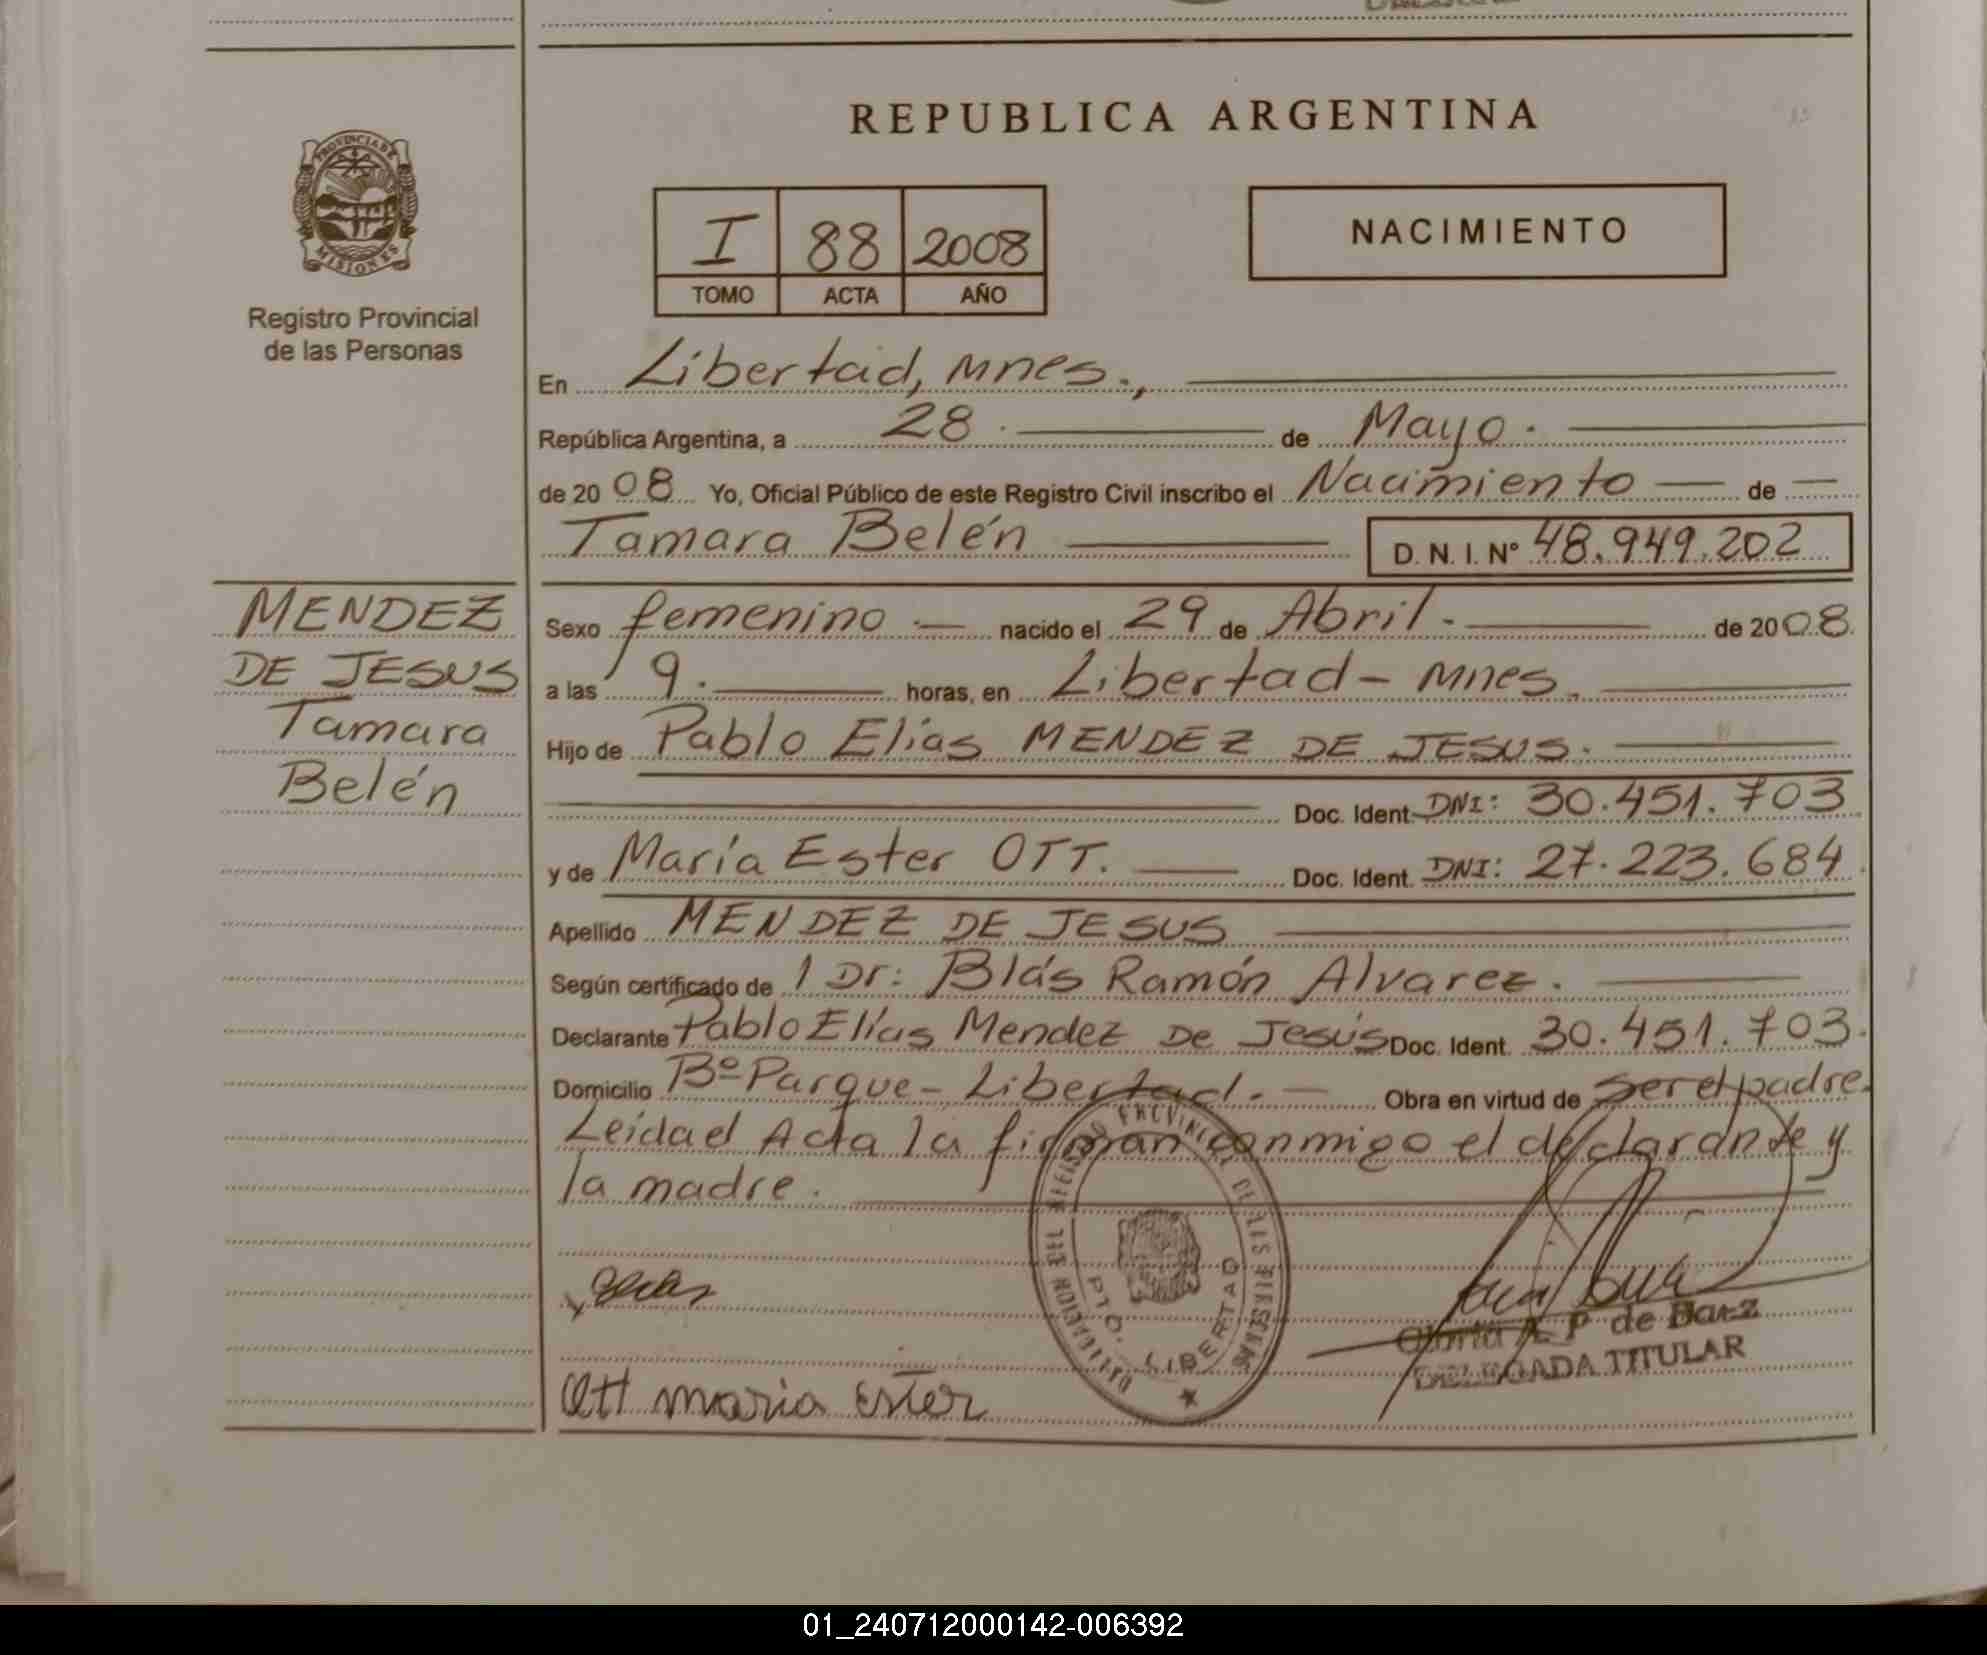 REPUBLICA ARGENTINA
PROVINCIA DE
MISIONES
Registro Provincial
de las Personas
I 88 2008
TOMO ACTA AÑO
NACIMIENTO
En Libertad, Mnes.,
República Argentina, a 28 de Mayo.
de 20 08 Yo, Oficial Público de este Registro Civil inscribo el Nacimiento de
Tamara Belén D. N. I. Nº 48.949.202
MENDEZ
DE JESUS
Tamara
Belén
Sexo femenino nacido el 29 de Abril. de 20 08.
a las 9. horas, en Libertad - Mnes.
Hijo de Pablo Elías MENDEZ DE JESUS.
Doc. Ident. DNI: 30.451.703
y de María Ester OTT. Doc. Ident. DNI: 27.223.684
Apellido MENDEZ DE JESUS
Según certificado de l Dr: Blás Ramón Alvarez.
Declarante Pablo Elías Mendez De Jesús Doc. Ident. 30.451.703.
Domicilio Bº Parque - Libertad. Obra en virtud de ser el padre.
Leída el Acta la firman conmigo el declarante y
la madre.
DELEGACION DEL REGISTRO PROVINCIAL DE LAS PERSONAS
PTO. LIBERTAD
P de
DELEGADA TITULAR
Ott maria Ester
01_240712000142-006392